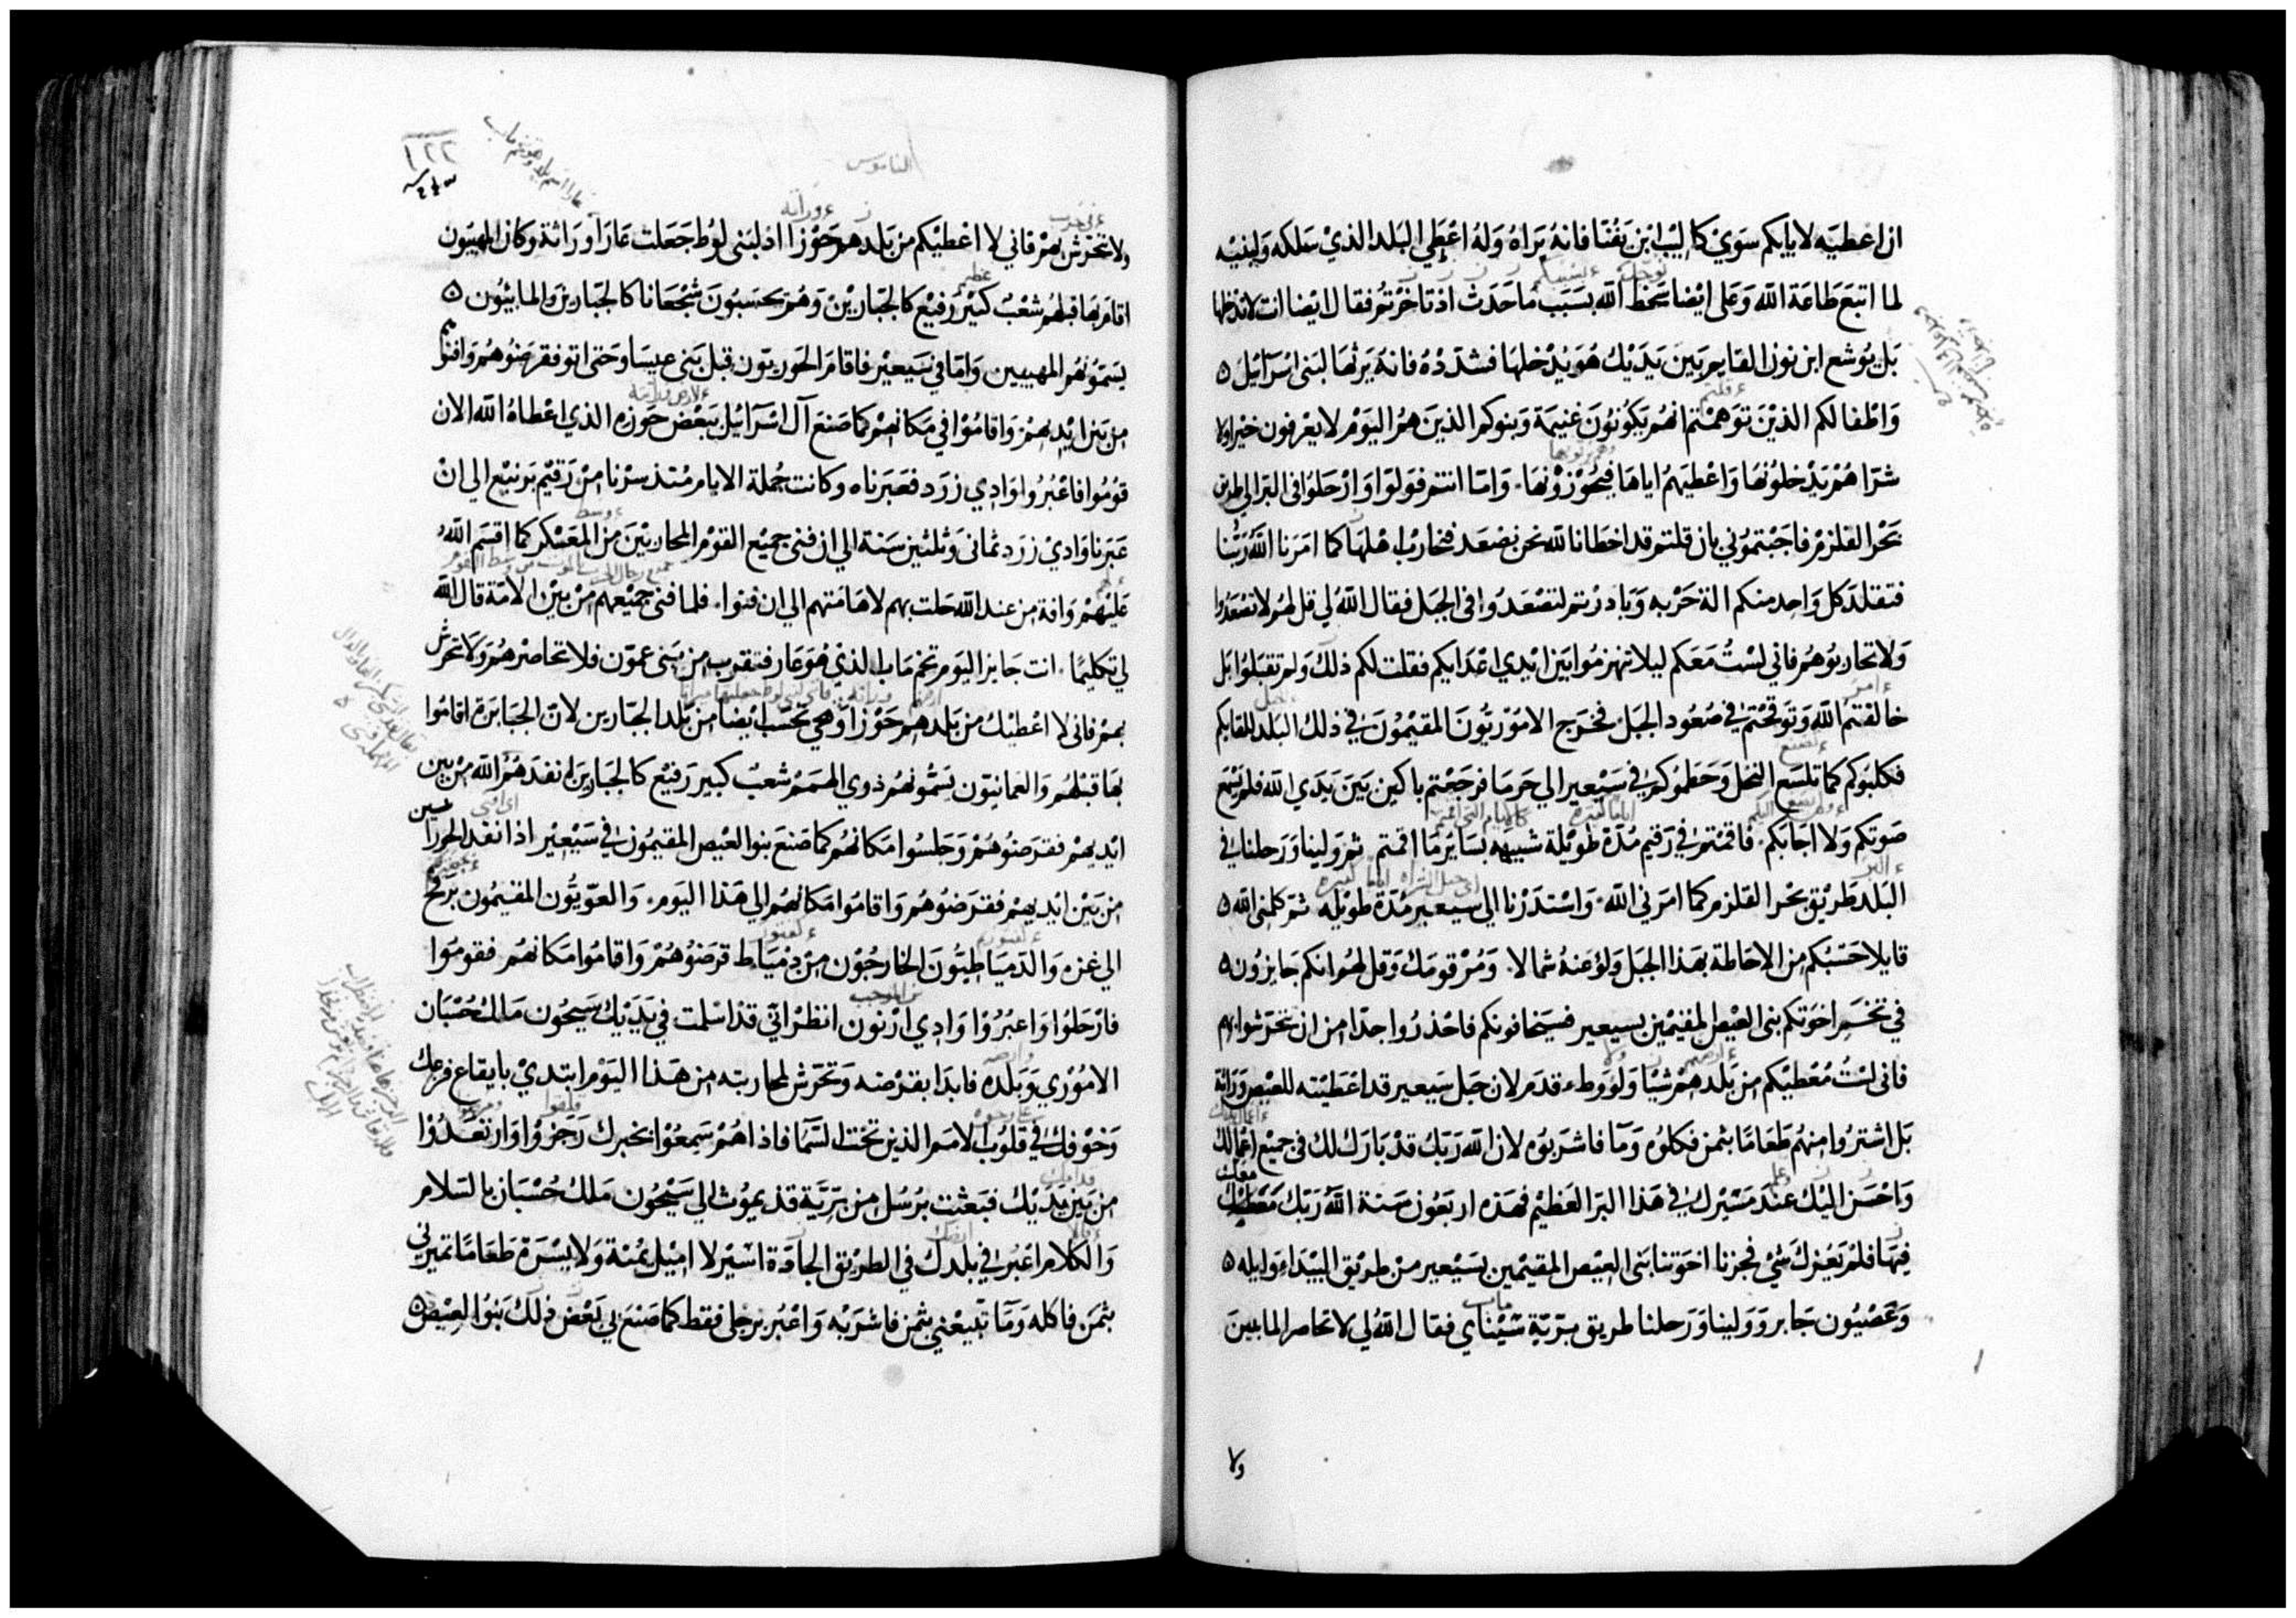 ان اعطيه لابايكم سوي كاليب ابن يفنا فانه يراه وله اعطي البلد الذي سلكه ولبنيه
لما اتبع طاعة الله وعلى ايضا سخط الله بسبب ما حدث اذ تاخرتم فقال ايضا انت لا تدخلها
بل يوشع ابن نون القايم بين يديك هو يدخلها فشدده فانه يرثها لبني اسرآئيل
واطفالكم الذين توهمتم انهم يكونون غنيمة وبنوكم الذين هم اليوم لا يعرفون خيرا ولا
شرا هم يدخلونها واعطيهم اياها فيحوزونها واما انتم فولوا وارحلوا في البر الي طريق
بحر القلزم فاجبتموني بان قلتم قد اخطانا لله نحن نصعد فنحارب اهلها كما امرنا الله ربنا
فتقلد كل واحد منكم الة حربه وبادرتم لتصعدوا في الجبل فقال الله لي قل لهم لا تصعدوا
ولا تحاربوهم فاني لست معكم ليلا تنهزموا بين ايدي اعدايكم فقلت لكم ذلك ولم تقبلوا بل
خالفتم الله وتوقحتم في صعود الجبل فخرج الاموريون المقيمون في ذلك البلد للقايكم
فكلبوكم كما تلسع النحل وحطموكم في سيعير الي حرما فرجعتم باكين بين يدي الله فلم يسمع
صوتكم ولا اجابكم فاقمتم في رقيم مدة طويلة شبيهه بساير ما اقمتم ثم ولينا ورحلنا في
البلد طريق بحر القلزم كما امرني الله واستدرنا الي سيعير مدة طويله ثم كلمني الله
قايلا حسبكم من الاحاطة بهذا الجبل ولوا عنه شمالا ومر قومك وقل لهم انكم جايزون
في تخم اخوتكم بني العيص المقيمين بسيعير فسيخافونكم فاحذروا جدا من ان تتحرشوا بهم
فاني لست معطيكم من بلدهم شيا ولو وطء قدم لان جبل سيعير قد اعطيته للعيص وراثة
بل اشتروا منهم طعاما بثمن فكلوه ومآ فاشربوه لان الله ربك قد بارك لك في جميع اعمالك
واحسن اليك عند مسيرك في هذا البر العظيم فهذه اربعون سنة الله ربك معك
فيها فلم يعزك شي فجزنا اخوتنا بني العيص المقيمين بسيعير من طريق البيداء وايله
وعصيون جابر وولينا ورحلنا طريق برية فقال الله لي لا تحاصر المابيين
ولا
الناموس
١٢٢
ولا تتحرش بهم فاني لا اعطيكم من بلدهم حوزا اذ لبني لوط جعلت عارا وراثة وكان المهيبون
اقام بها قبلهم شعب كبير رفيع كالجبارين وهم يحسبون شجعانا كالجبارين والمابيون
يسمونهم المهيبين واما في سيعير فاقام الحوريون قبل بني عيسا وحتى اتو فقرضوهم وافنوهم
من بين ايديهم واقاموا في مكانهم كما صنع آل اسرآئيل ببعض حوزه الذي اعطاه الله الان
قوموا فاعبروا وادي زرد فعبرناه وكانت جملة الايام منذ سرنا من رقيم برنيع الي ان
عبرنا وادي زرد ثماني وثلثين سنة الي ان فني جميع القوم المحاربين من المعسكر كما اقسم الله
عليهم وافة من عند الله حلت بهم لاهامتهم الي ان فنوا فلما فني جميعهم من بين الامة قال الله
لي تكليما انت جايز اليوم تخم ماب الذي هو عار فتقرب من بني عمون فلا تحاصرهم ولا تحرش
بهم فاني لا اعطيك من بلدهم حوزا وهي تحسب ايضا من بلد الجبارين لان الجبابرة اقاموا
بها قبلهم والعمانيون يسمونهم ذوي الهمم شعب كبير رفيع كالجبارين انفدهم الله من بين
ايديهم فقرضوهم وجلسوا مكانهم كما صنع بنو العيص المقيمون في سيعير اذ انفد الحورانيين
من بين ايديهم فقرضوهم واقاموا مكانهم الي هذا اليوم والعويون المقيمون برفح
الي غزه والدمياطيون الخارجون من دمياط قرضوهم واقاموا مكانهم فقوموا
فارحلوا واعبروا وادي ارنون انظر اني قد اسلمت في يديك سيحون ملك حسبان
الاموري وبلده فابدا بقرضه وتحرش لمحاربته من هذا اليوم ابتدي بايقاع فزعك
وخوفك في قلوب الامم الذين تحت السما فاذا هم سمعوا بخبرك رجزوا وارتعدوا
من بين يديك فبعثت برسل من برية قديموث الي سيحون ملك حسبان بالسلام
والكلام اعبر في بلدك في الطريق الجادة اسير لا اميل يمنة ولا يسرة طعاما تميرني
بثمن فاكله ومآ تبيعني بثمن فاشربه واعبر برجلي فقط كما صنع بي بعض ذلك بنو العيص